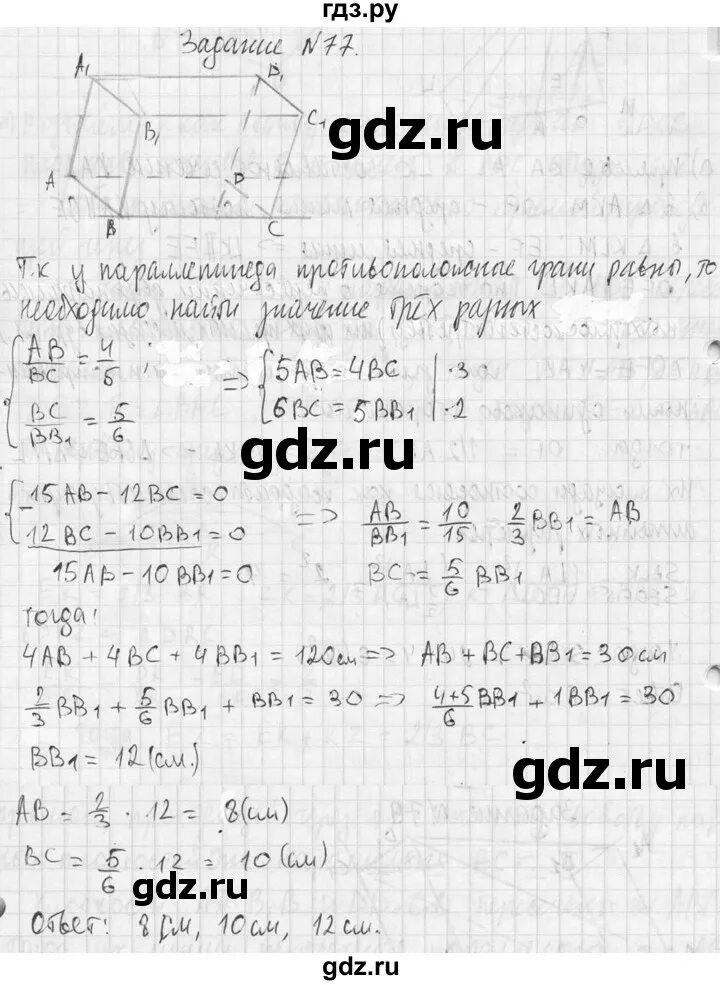 гдз.ру
Задание N77.
A1 D1
B1 C1
A D
B C
gdz.ru
Т.к у параллепипеда противоположные грани равны, то
необходимо найти значение трёх разных
{ AB/BC = 4/5 ; => { 5AB = 4BC | ·3
BC/BB1 = 5/6 6BC = 5BB1 | ·2
gdz.ru
{ 15AB - 12BC = 0 => AB/BB1 = 10/15 2/3 BB1 = AB
12BC - 10BB1 = 0
15AB - 10BB1 = 0 BC = 5/6 BB1
тогда:
gdz.ru
4AB + 4BC + 4BB1 = 120см => AB + BC + BB1 = 30см
2/3 BB1 + 5/6 BB1 + BB1 = 30 => (4+5)/6 BB1 + 1BB1 = 30
BB1 = 12(см.)
gdz.ru
AB = 2/3 · 12 = 8(см)
BC = 5/6 · 12 = 10(см)
gdz.ru
Ответ: 8см, 10см, 12см.
gdz.ru